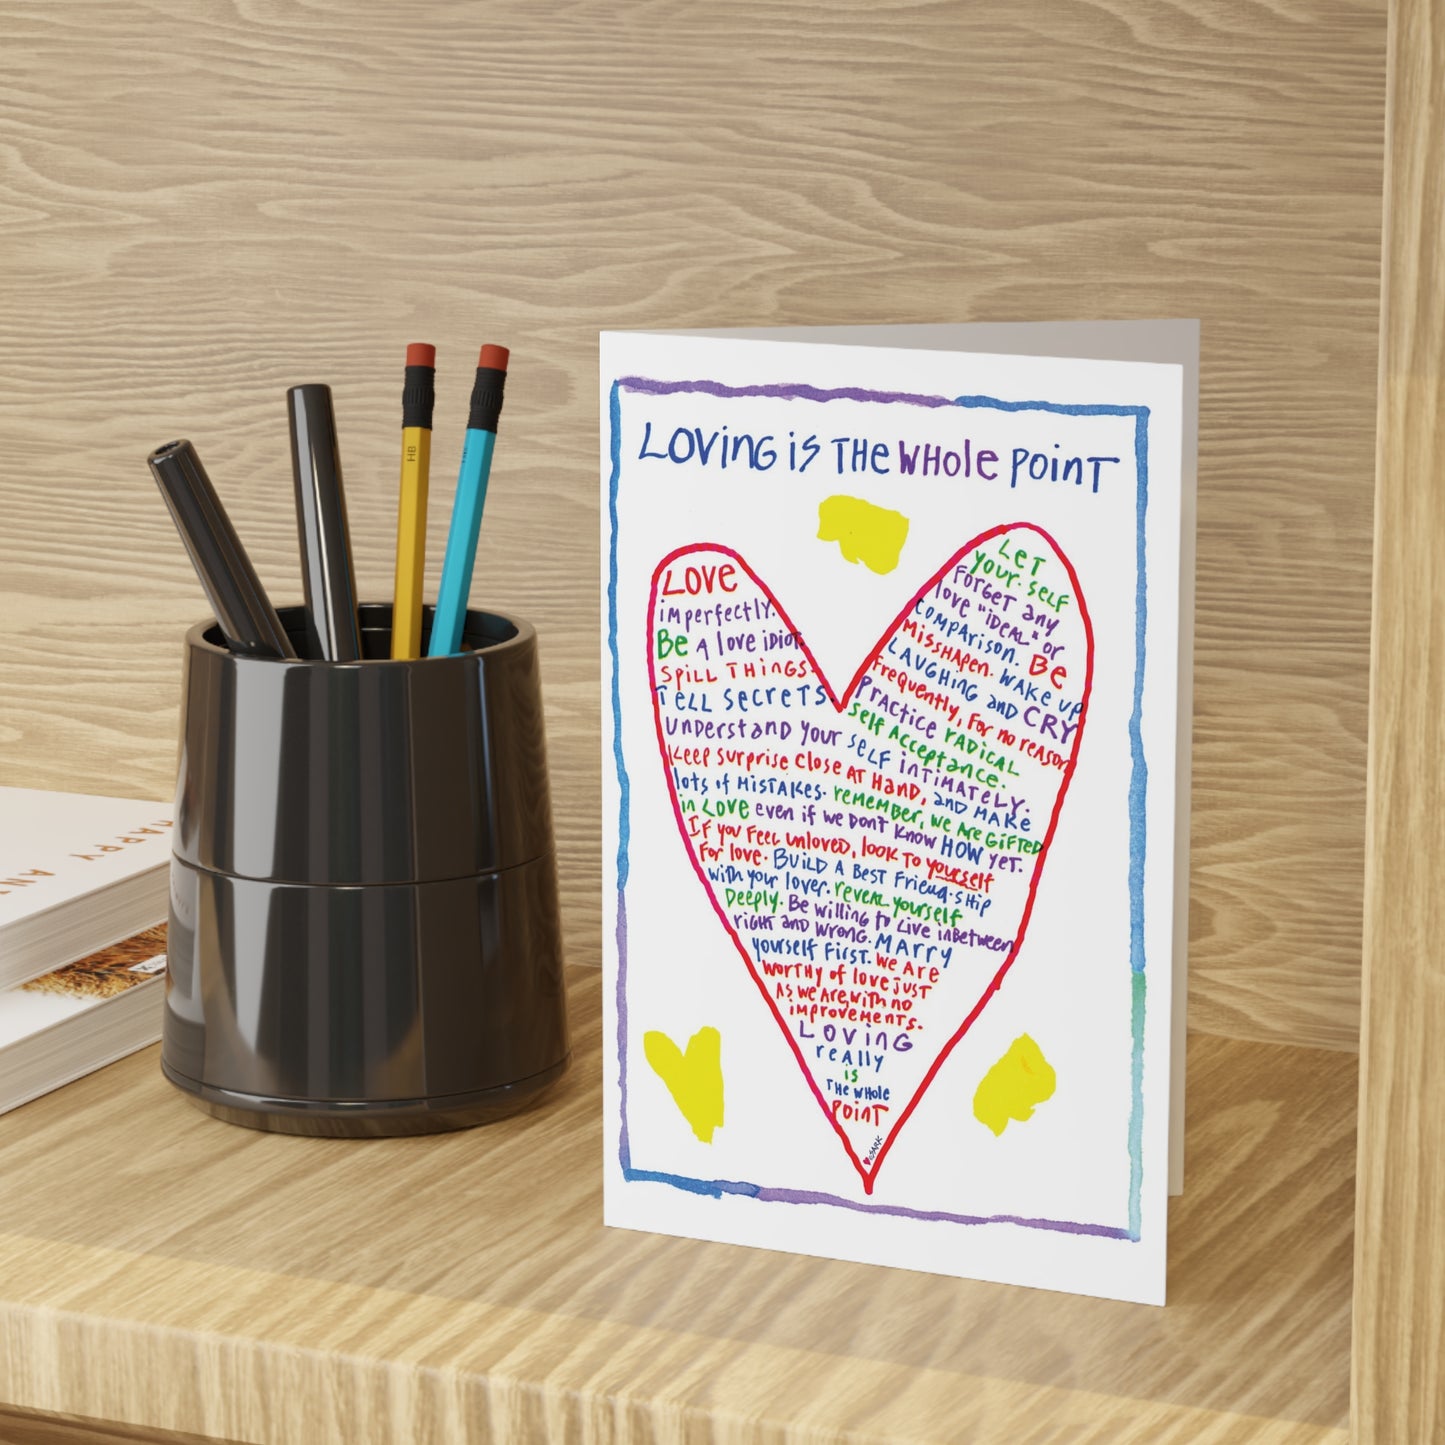 LOVING iS THE WHOLE POINT
LOVE
imperfectly.
Be A love iDiot.
SPILL THINGS.
TELL SECRETS.
LET
YOUR-SELF
FORGET any
love "iDEAL" or
COMPArison. BE
MISSHAPEN. WAKE UP
LAUGHING and CRY
Frequently, For no reason
PRACTICE rADICAL
Self Acceptance.
Understand your SELF intimately.
Keep surprise close at hand, and make
lots of mistakes. remember, we are gifted
in LOVE even if we don't know HOW yet.
If you feel unloved, look to yourself
for love. Build a best friend-ship
with your lover. reveal yourself
Deeply. Be willing to live inbetween
right and wrong. MARRY
yourself First. We are
worthy of love just
As we are, with no
improvements.
LOVING
really
is
THE WHOLE
POINT
©SARK
HB
HAPPY ANT